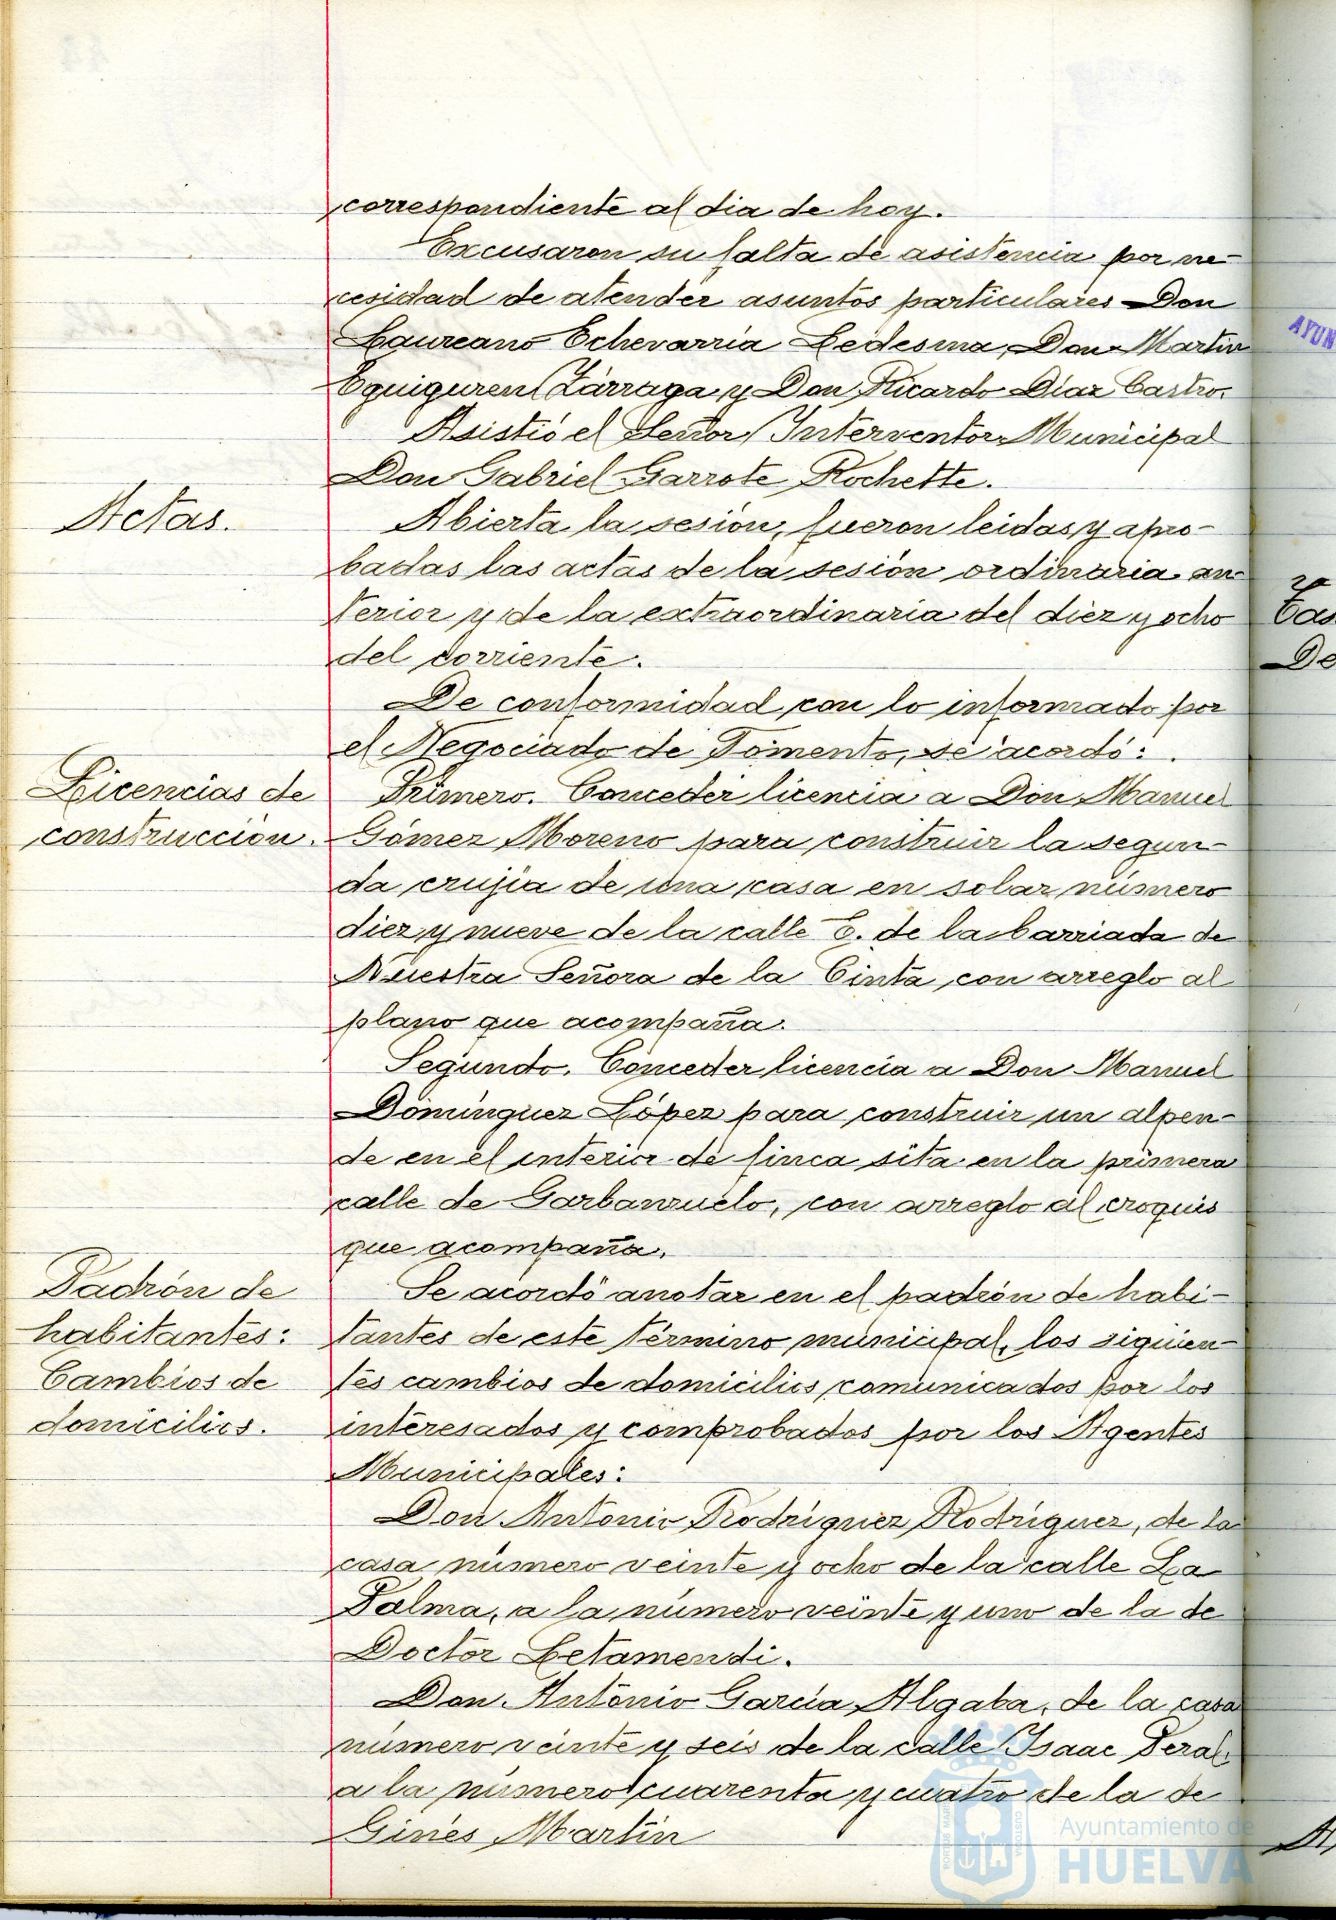 correspondiente al dia de hoy.
Excusaron su falta de asistencia por ne-
cesidad de atender asuntos particulares Don
Laureano Echevarría Ledesma, Don Martín
Eguiguren Zárraga y Don Ricardo Díaz Castro.
Asistió el Señor Interventor Municipal
Don Gabriel Garrote Rochette.
Actas.
Abierta la sesión, fueron leidas y apro-
badas las actas de la sesión ordinaria an-
terior y de la extraordinaria del diez y ocho
del corriente.
De conformidad con lo informado por
el Negociado de Fomento, se acordó:
Licencias de
construcción.
Primero. Conceder licencia a Don Manuel
Gómez Moreno para construir la segun-
da crujía de una casa en solar número
diez y nueve de la calle E. de la barriada de
Nuestra Señora de la Cinta, con arreglo al
plano que acompaña.
Segundo. Conceder licencia a Don Manuel
Domínguez López para construir un alpen-
de en el interior de finca sita en la primera
calle de Garbanzuelo, con arreglo al croquis
que acompaña.
Padrón de
habitantes:
Cambios de
domicilios.
Se acordó anotar en el padrón de habi-
tantes de este término municipal, los siguien-
tes cambios de domicilios comunicados por los
interesados y comprobados por los Agentes
Municipales:
Don Antonio Rodríguez Rodríguez, de la
casa número veinte y ocho de la calle La
Palma, a la número veinte y uno de la de
Doctor Letamendi.
Don Antonio García Algaba, de la casa
número veinte y seis de la calle Isaac Peral,
a la número cuarenta y cuatro de la de
Ginés Martín
AYUN
Cas
De
Ayuntamiento de
HUELVA